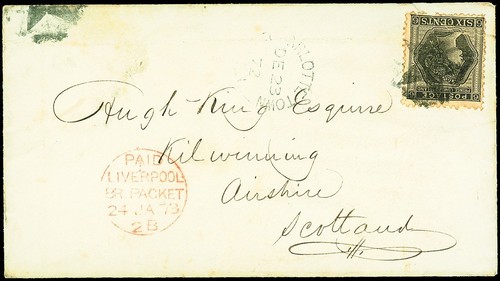 SIX CENTS
POSTAGE
DE 23
72
Hugh King Esquire
Kilwinning
Airshire
Scotland
PAID
LIVERPOOL
BR PACKET
24 JA 73
2B